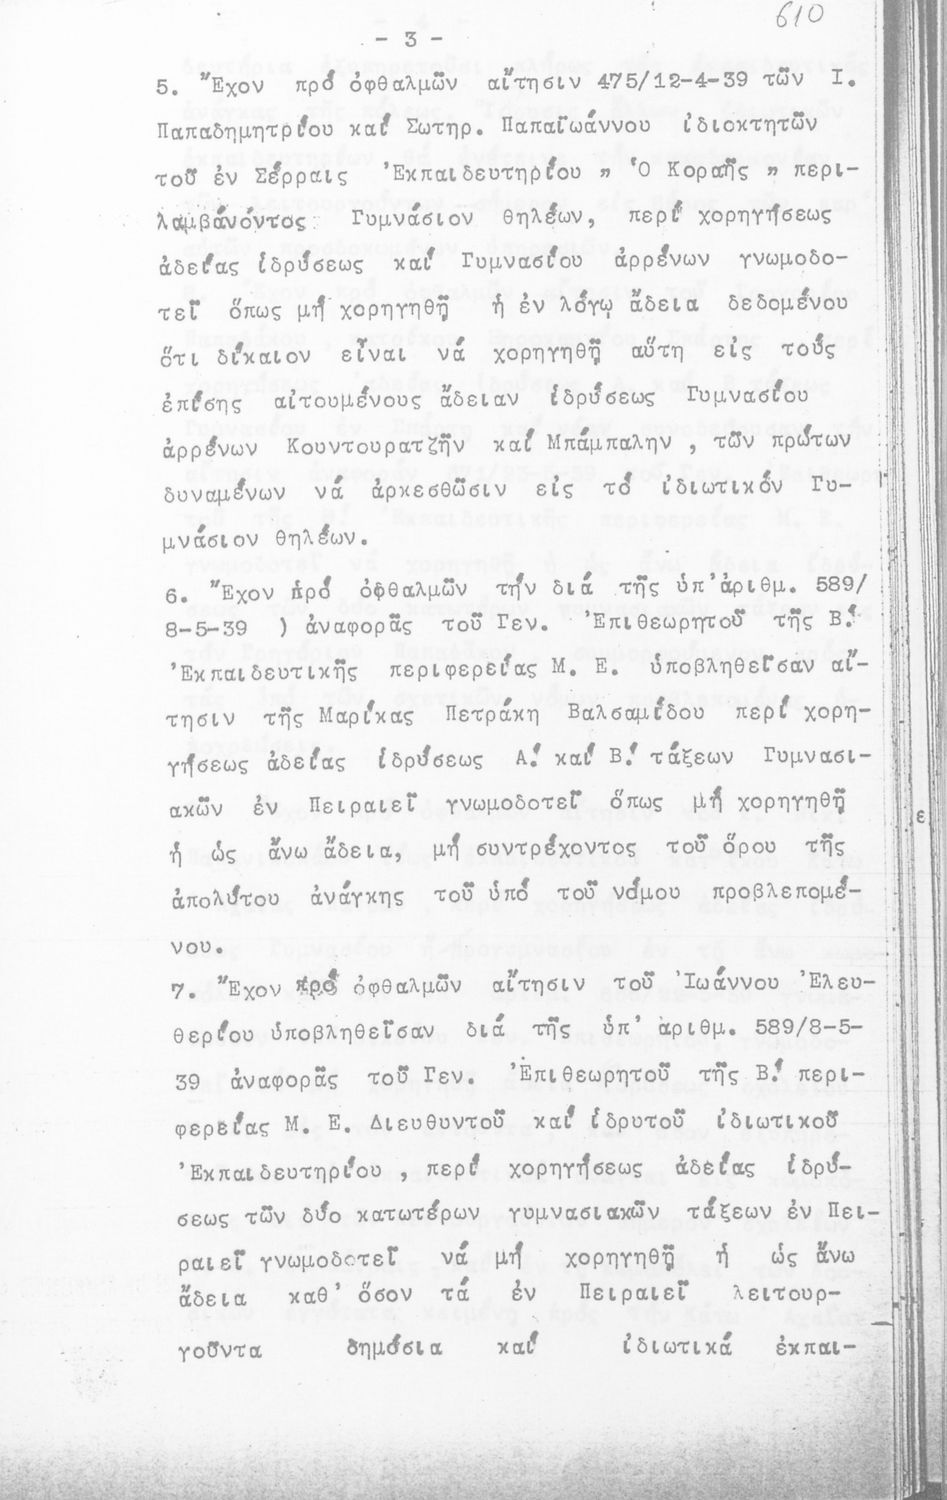 610
- 3 -
5. Ἔχον πρό ὀφθαλμῶν αἴτησιν 475/12-4-39 τῶν Ι.
Παπαδημητρίου καί Σωτηρ. Παπαϊωάννου ἰδιοκτητῶν
τοῦ ἐν Σέρραις Ἐκπαιδευτηρίου " Ὁ Κοραῆς " περι-
λαμβάνόντος Γυμνάσιον θηλέων, περί χορηγήσεως
ἀδείας ἱδρύσεως καί Γυμνασίου ἀρρένων γνωμοδο-
τεῖ ὅπως μή χορηγηθῇ ἡ ἐν λόγῳ ἄδεια δεδομένου
ὅτι δίκαιον εἶναι νά χορηγηθῇ αὕτη εἰς τούς
ἐπίσης αἰτουμένους ἄδειαν ἱδρύσεως Γυμνασίου
ἀρρένων Κουντουρατζῆν καί Μπάμπαλην , τῶν πρώτων
δυναμένων νά ἀρκεσθῶσιν εἰς τό ἰδιωτικόν Γυ-
μνάσιον θηλέων.
6. Ἔχον πρό ὀφθαλμῶν τήν διά τῆς ὑπ' ἀριθμ. 589/
8-5-39 ) ἀναφορᾶς τοῦ Γεν. Ἐπιθεωρητοῦ τῆς Β.'
Ἐκπαιδευτικῆς περιφερείας Μ. Ε. ὑποβληθεῖσαν αἴ-
τησιν τῆς Μαρίκας Πετράκη Βαλσαμίδου περί χορη-
γήσεως ἀδείας ἱδρύσεως Α.' καί Β.' τάξεων Γυμνασι-
ακῶν ἐν Πειραιεῖ γνωμοδοτεῖ ὅπως μή χορηγηθῇ
ἡ ὡς ἄνω ἄδεια, μή συντρέχοντος τοῦ ὅρου τῆς
ἀπολύτου ἀνάγκης τοῦ ὑπό τοῦ νόμου προβλεπομέ-
νου.
7. Ἔχον πρό ὀφθαλμῶν αἴτησιν τοῦ Ἰωάννου Ἐλευ-
θερίου ὑποβληθεῖσαν διά τῆς ὑπ' ἀριθμ. 589/8-5-
39 ἀναφορᾶς τοῦ Γεν. Ἐπιθεωρητοῦ τῆς Β.' περι-
φερείας Μ. Ε. Διευθυντοῦ καί ἱδρυτοῦ ἰδιωτικοῦ
Ἐκπαιδευτηρίου ,περί χορηγήσεως ἀδείας ἱδρύ-
σεως τῶν δύο κατωτέρων γυμνασιακῶν τάξεων ἐν Πει-
ραιεῖ γνωμοδοτεῖ νά μή χορηγηθῇ ἡ ὡς ἄνω
ἄδεια καθ' ὅσον τά ἐν Πειραιεῖ λειτουρ-
γοῦντα δημόσια καί ἰδιωτικά ἐκπαι-